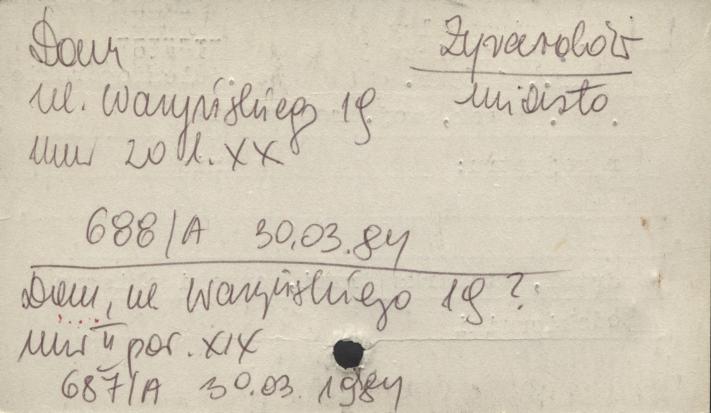 Dom
Żyrardów
ul. Waryńskiego 19
miasto
mur 20 l. XX
688/A 30.03.84
Dom, ul Waryńskiego 19?
mur II poł. XIX
687/A 30.03.1984